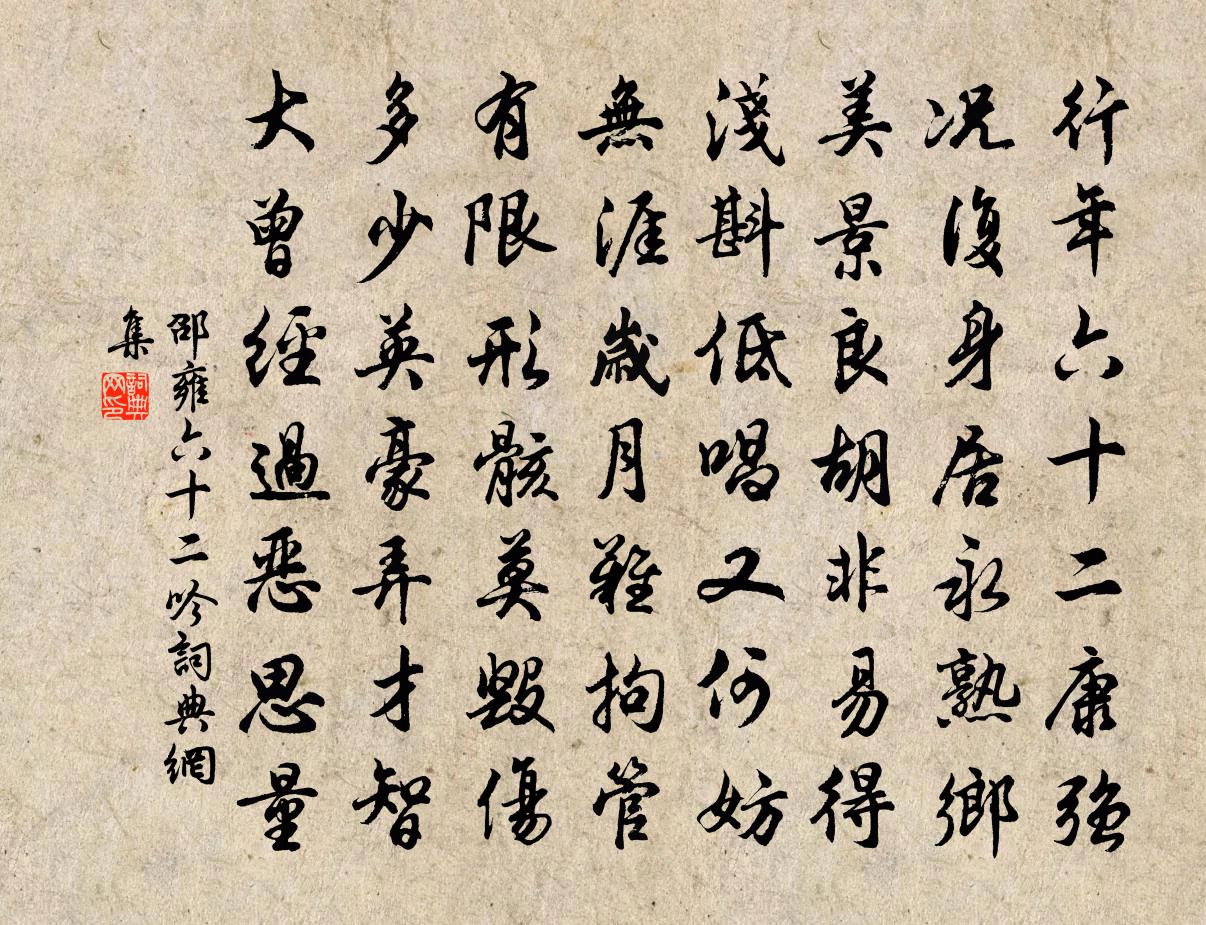 行年六十二康強
況復身居永熟鄉
美景良胡非易得
淺斟低唱又何妨
無涯歲月難拘管
有限形骸莫毀傷
多少英豪弄才智
大曾經過惡思量
邵雍六十二吟詞典網
集
詞典
网印